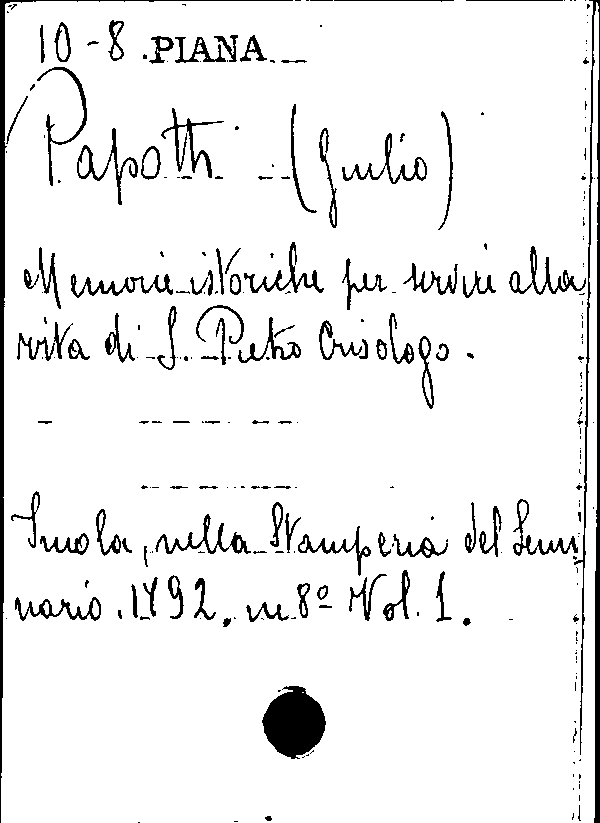 10-8 PIANA
Papotti (Giulio)
Memorie istoriche per servire alla
vita di S. Pietro Crisologo.
Imola, nella Stamperia del Semi
nario. 1792. in 8º Vol. 1.